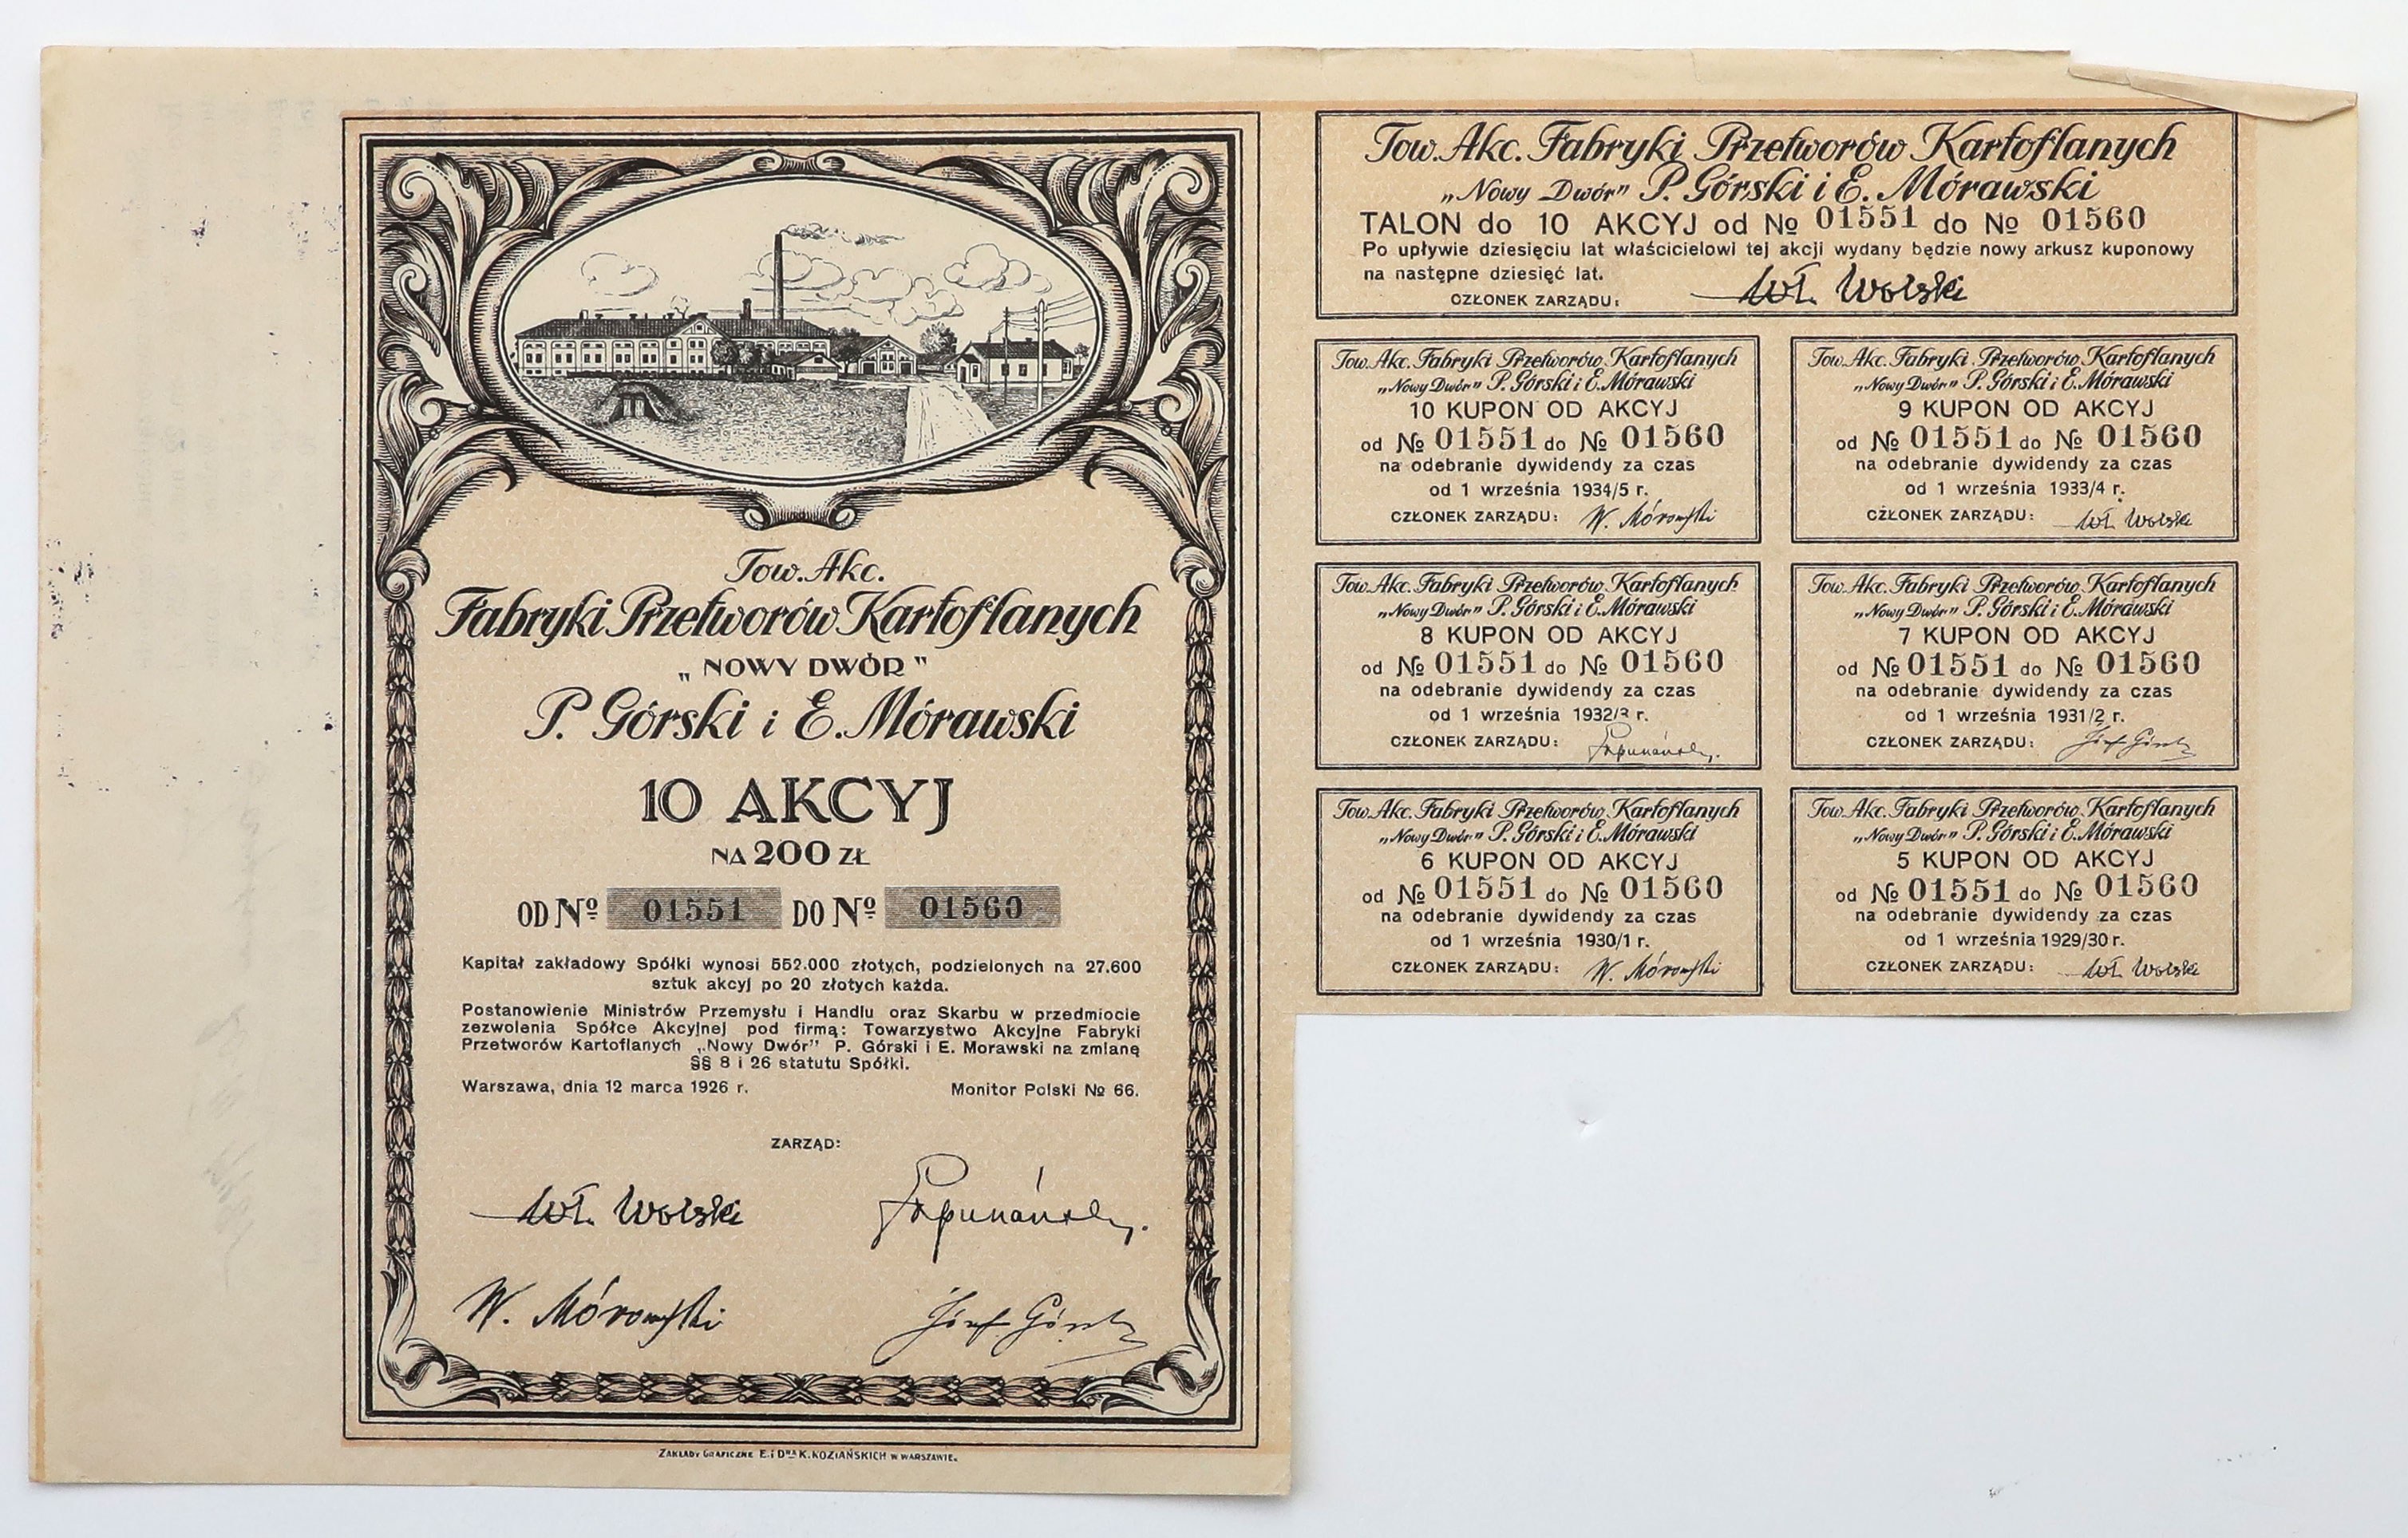 Tow. Akc.
Fabryki Przetworów Kartoflanych
„NOWY DWÓR"
P. Górski i E. Mórawski
10 AKCYJ
NA 200 ZŁ
OD Nº 01551 DO Nº 01560
Kapitał zakładowy Spółki wynosi 552.000 złotych, podzielonych na 27.600
sztuk akcyj po 20 złotych każda.
Postanowienie Ministrów Przemysłu i Handlu oraz Skarbu w przedmiocie
zezwolenia Spółce Akcyjnej pod firmą: Towarzystwo Akcyjne Fabryki
Przetworów Kartoflanych „Nowy Dwór” P. Górski i E. Morawski na zmianę
§§ 8 i 26 statutu Spółki.
Warszawa, dnia 12 marca 1926 r. Monitor Polski № 66.
ZARZĄD:
Wł. Wolski
W. Mórawski Józef Górski
ZAKŁADY GRAFICZNE E. i Dra K. KOZIAŃSKICH W WARSZAWIE.
Tow. Akc. Fabryki Przetworów Kartoflanych
„Nowy Dwór" P. Górski i E. Mórawski
TALON do 10 AKCYJ od № 01551 do № 01560
Po upływie dziesięciu lat właścicielowi tej akcji wydany będzie nowy arkusz kuponowy
na następne dziesięć lat.
CZŁONEK ZARZĄDU: Wł. Wolski
Tow. Akc. Fabryki Przetworów Kartoflanych
„Nowy Dwór" P. Górski i E. Mórawski
10 KUPON OD AKCYJ
od № 01551 do № 01560
na odebranie dywidendy za czas
od 1 września 1934/5 r.
CZŁONEK ZARZĄDU: W. Mórawski
Tow. Akc. Fabryki Przetworów Kartoflanych
„Nowy Dwór" P. Górski i E. Mórawski
9 KUPON OD AKCYJ
od № 01551 do № 01560
na odebranie dywidendy za czas
od 1 września 1933/4 r.
CZŁONEK ZARZĄDU: Wł. Wolski
Tow. Akc. Fabryki Przetworów Kartoflanych
„Nowy Dwór" P. Górski i E. Mórawski
8 KUPON OD AKCYJ
od № 01551 do № 01560
na odebranie dywidendy za czas
od 1 września 1932/3 r.
CZŁONEK ZARZĄDU:
Tow. Akc. Fabryki Przetworów Kartoflanych
„Nowy Dwór" P. Górski i E. Mórawski
7 KUPON OD AKCYJ
od № 01551 do № 01560
na odebranie dywidendy za czas
od 1 września 1931/2 r.
CZŁONEK ZARZĄDU: Józef Górski
Tow. Akc. Fabryki Przetworów Kartoflanych
„Nowy Dwór" P. Górski i E. Mórawski
6 KUPON OD AKCYJ
od № 01551 do № 01560
na odebranie dywidendy za czas
od 1 września 1930/1 r.
CZŁONEK ZARZĄDU: W. Mórawski
Tow. Akc. Fabryki Przetworów Kartoflanych
„Nowy Dwór" P. Górski i E. Mórawski
5 KUPON OD AKCYJ
od № 01551 do № 01560
na odebranie dywidendy za czas
od 1 września 1929/30 r.
CZŁONEK ZARZĄDU: Wł. Wolski